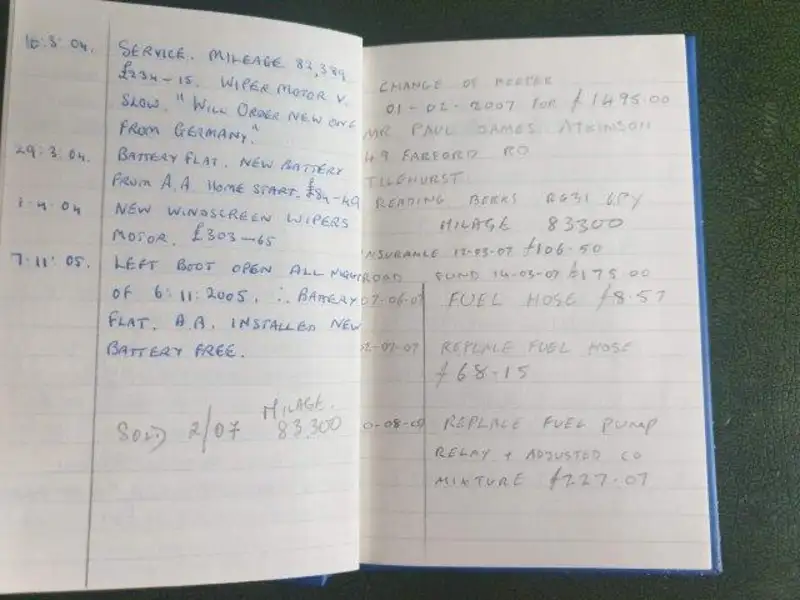 16:3:04. SERVICE. MILEAGE 83,389
£234-15. WIPER MOTOR V.
SLOW. "WILL ORDER NEW ONE
FROM GERMANY."
29:3:04. BATTERY FLAT. NEW BATTERY
FROM A.A. HOME START. £84-49
1:4:04 NEW WINDSCREEN WIPERS
MOTOR. £303-65
7:11:05. LEFT BOOT OPEN ALL NIGHT
OF 6:11:2005. ∴ BATTERY
FLAT. A.A. INSTALLED NEW
BATTERY FREE.
MILAGE.
SOLD 2/07 83300
CHANGE OF KEEPER
01-02-2007 FOR £1495.00
MR PAUL JAMES ATKINSON
49 FARFORD RD
TILEHURST
READING BERKS RG31 6PY
MILAGE 83300
INSURANCE 12-03-07 £106.50
ROAD FUND 14-03-07 £175.00
FUEL HOSE £8.57
REPLACE FUEL HOSE
£68-15
REPLACE FUEL PUMP
RELAY + ADJUSTED CO
MIXTURE £227.07